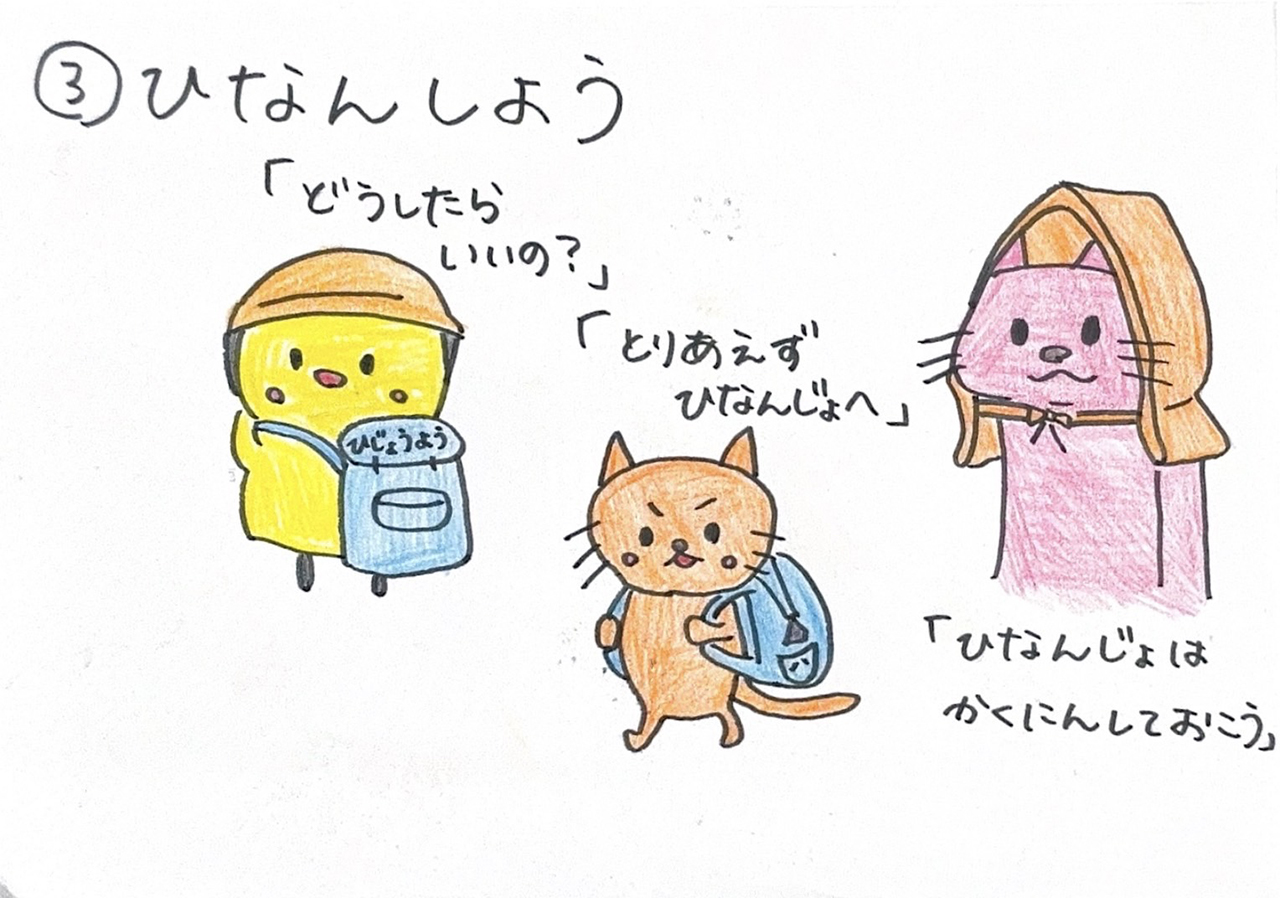 ③ひなんしよう
「どうしたら
いいの?」
「とりあえず
ひなんじょへ」
ひじょうよう
「ひなんじょは
かくにんしておこう」